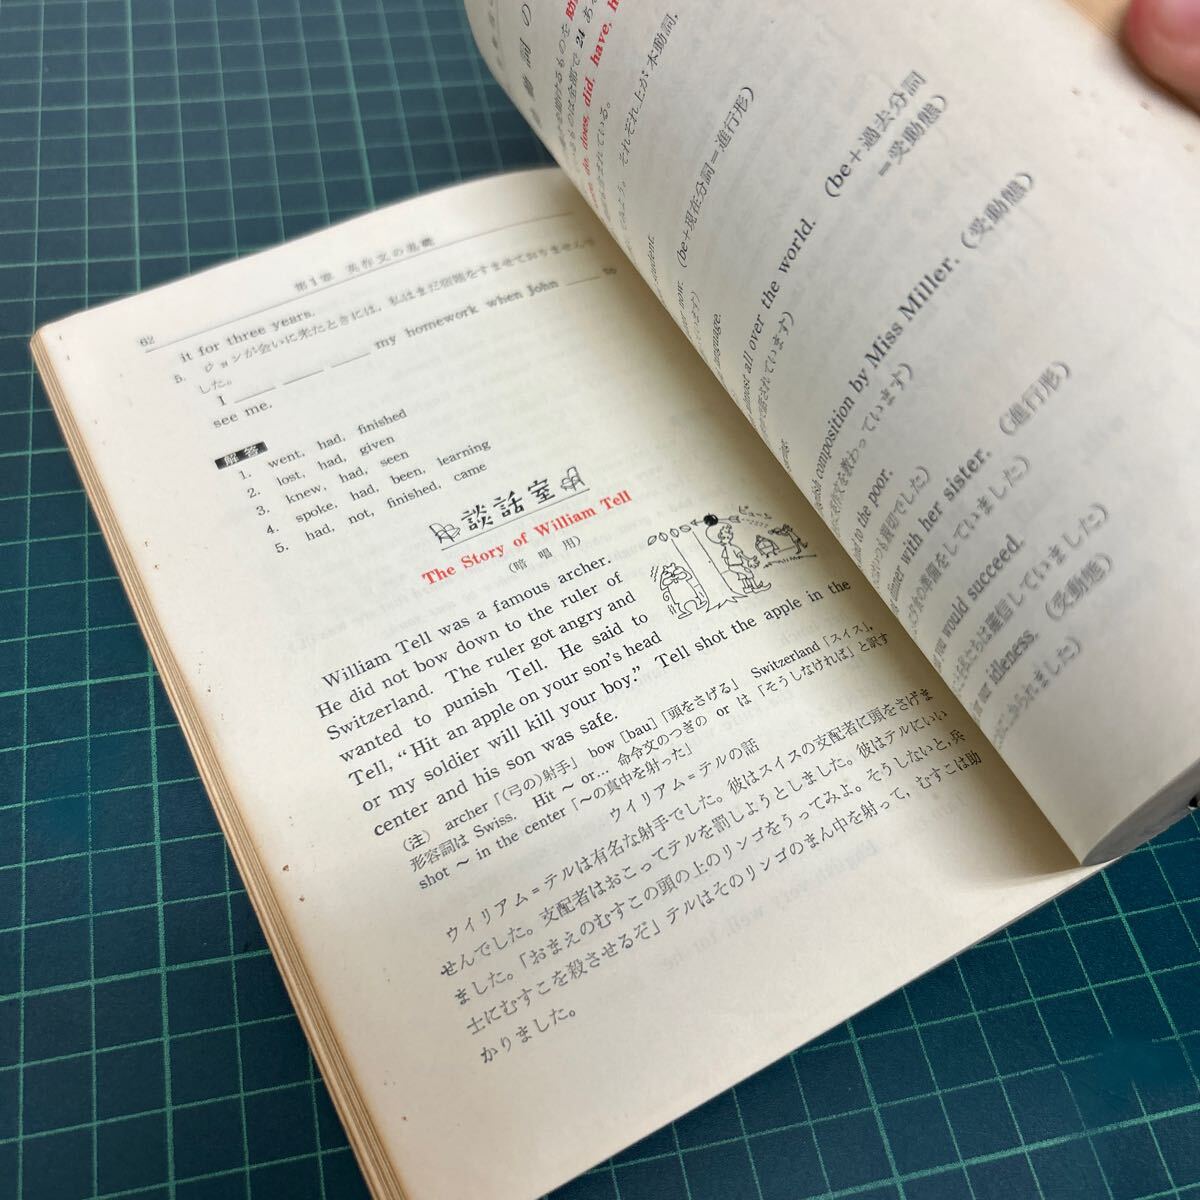 62
第1章 英作文の基礎
it for three years.
5. ジョンが会いに来たときには,私はまだ宿題をすませておりませんで
した。
I ____ ____ ____ my homework when John ____ to
see me.
解答
1. went, had, finished
2. lost, had, given
3. knew, had, seen
4. spoke, had, been, learning
5. had, not, finished, came
談話室
The Story of William Tell
(暗唱用)
William Tell was a famous archer.
He did not bow down to the ruler of
Switzerland. The ruler got angry and
wanted to punish Tell. He said to
Tell, “Hit an apple on your son's head
or my soldier will kill your boy.” Tell shot the apple in the
center and his son was safe.
(注) archer「(弓の)射手」 bow [bau]「頭をさげる」 Switzerland「スイス」,
形容詞は Swiss. Hit ~ or... 命令文のつぎの or は「そうしなければ」と訳す
shot ~ in the center「~の真中を射った」
ウイリアム=テルの話
ウイリアム=テルは有名な射手でした。彼はスイスの支配者に頭をさげま
せんでした。支配者はおこってテルを罰しようとしました。彼はテルにいい
ました。「おまえのむすこの頭の上のリンゴをうってみよ。そうしないと,兵
士にむすこを殺させるぞ」テルはそのリンゴのまん中を射って,むすこは助
かりました。
do, does, did, have,
24
それぞれ上が本動詞,
student.
now. (be+現在分詞=進行形)
language.
almost all over the world. (be+過去分詞
=受動態)
composition by Miss Miller. (受動態)
to the poor.
dinner with her sister. (進行形)
would succeed.
idleness. (受動態)